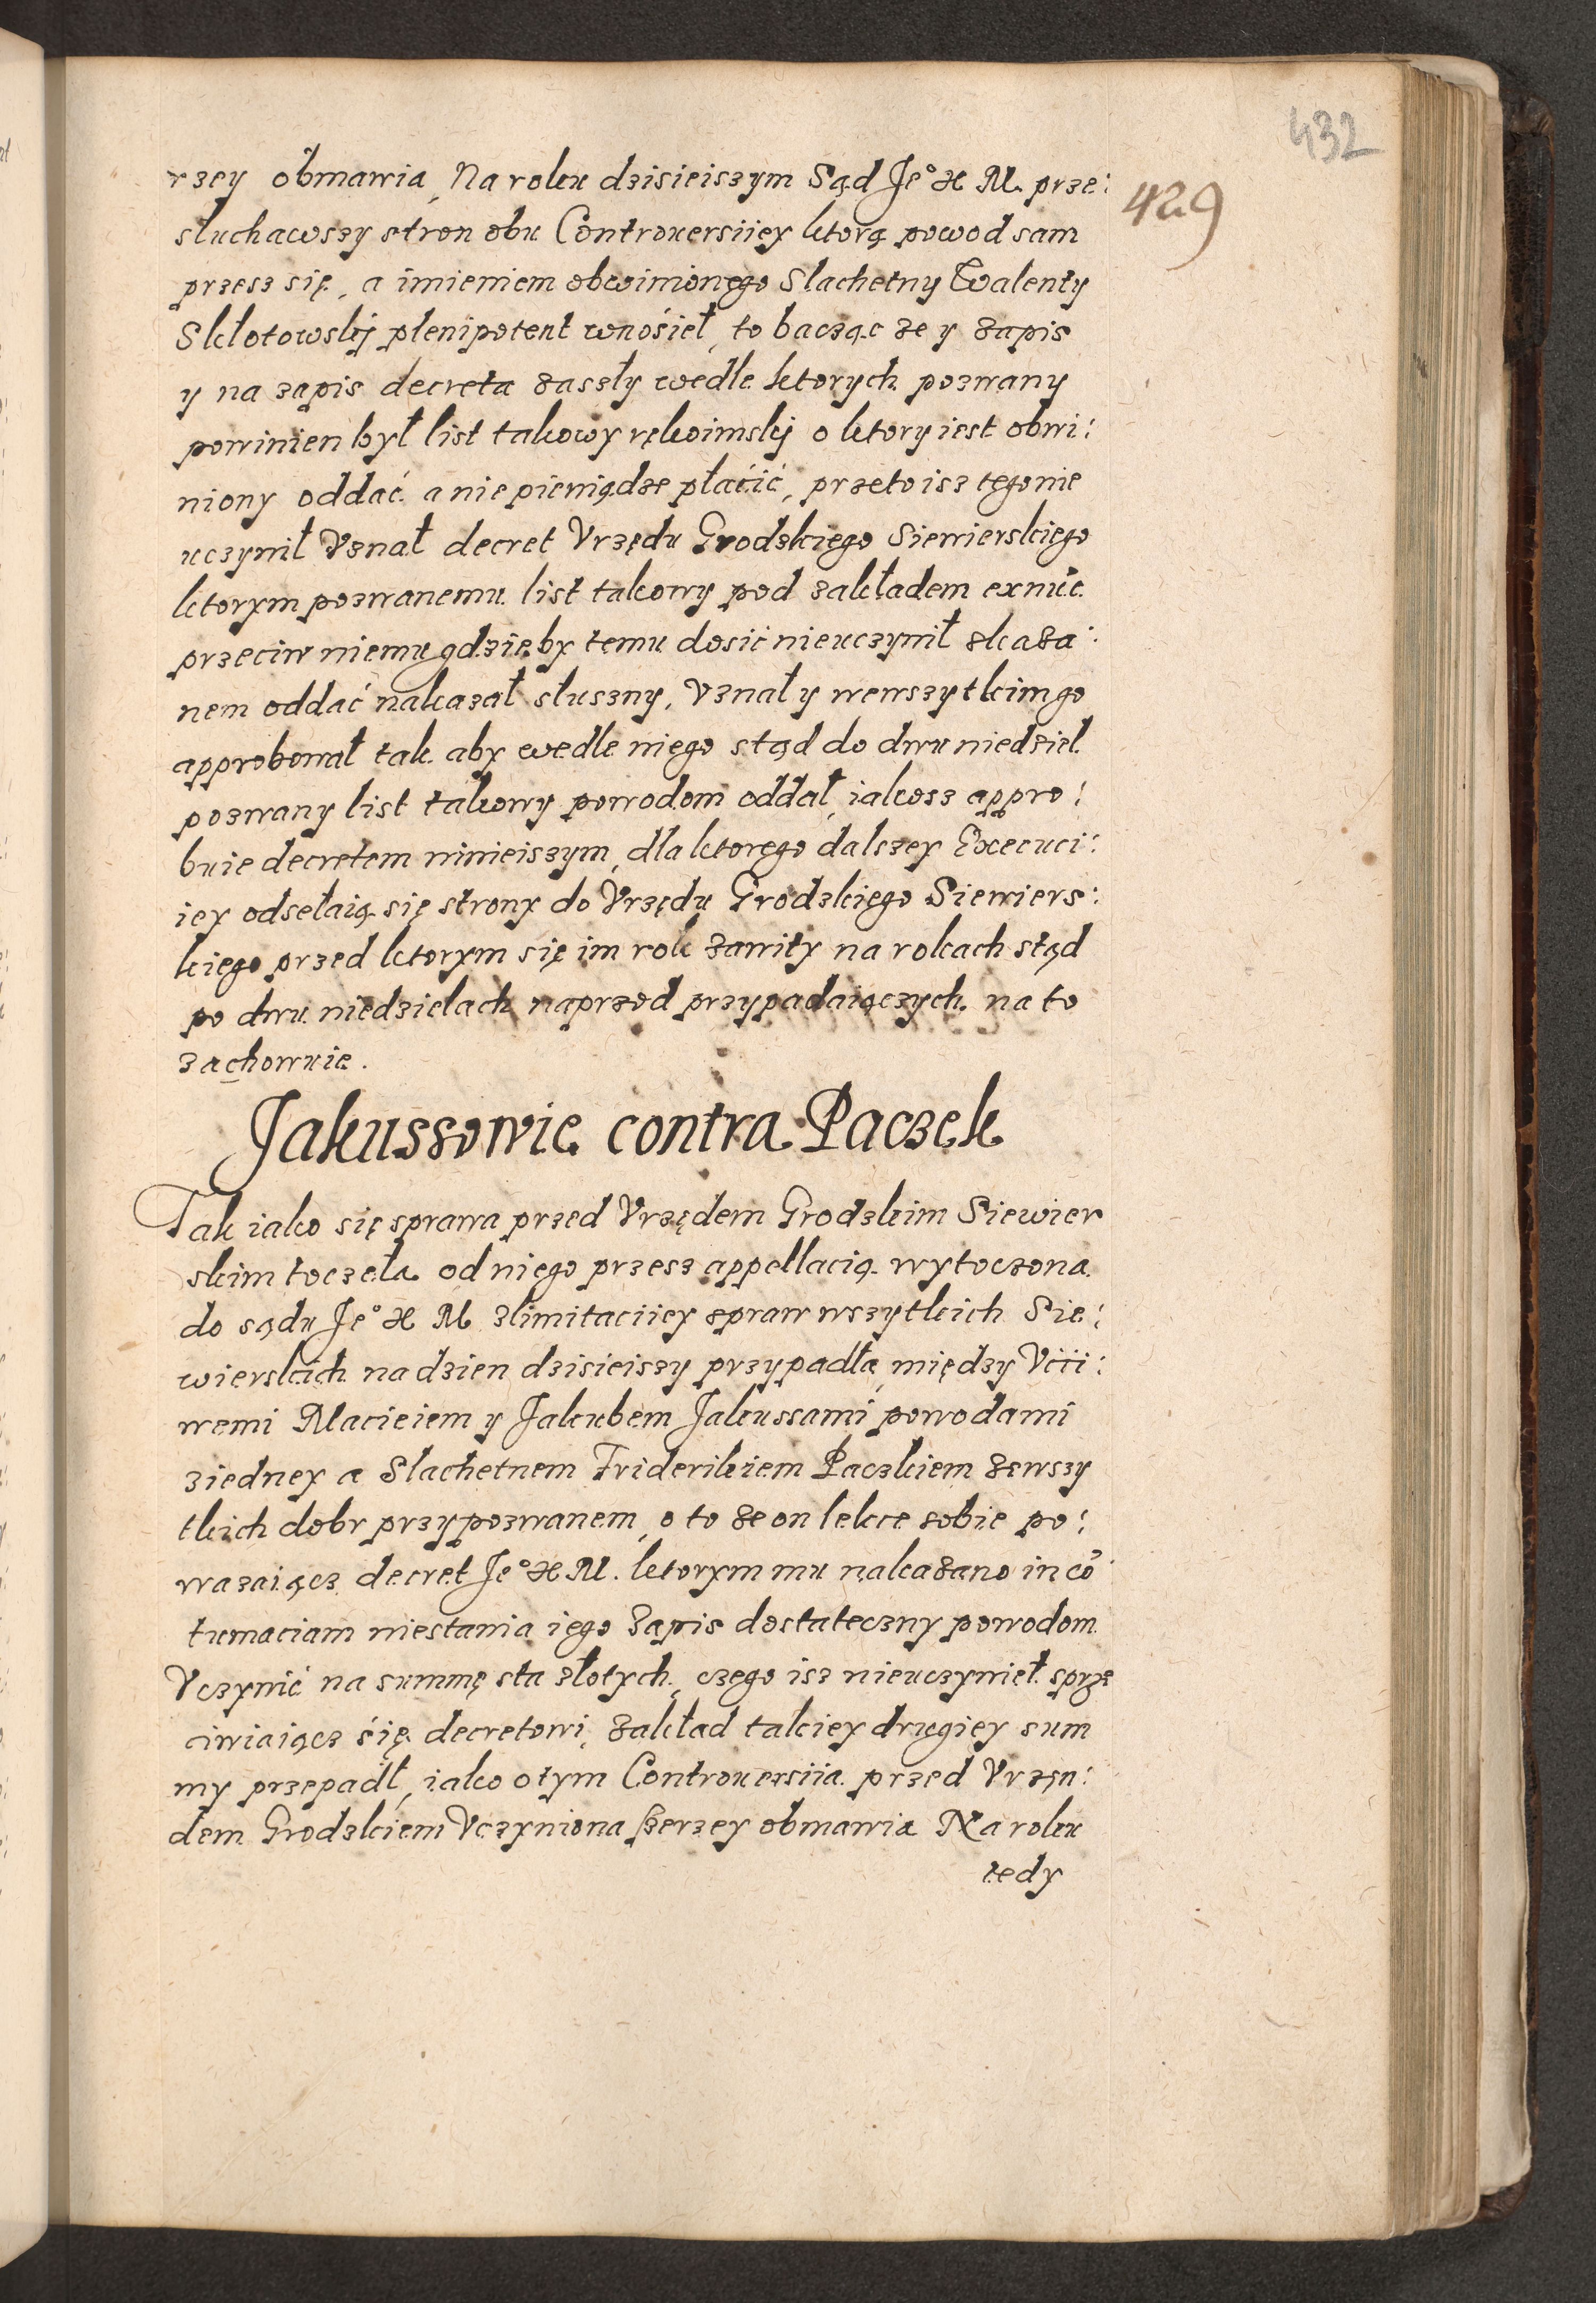 432
429
rzey obmawia, Na roku dzisieiszym Sąd Je° X M. prze:
słuchawszy stron obu Controuersiiey ktorą powod sam
przesz się, a imieniem obwinionęgo Slachetny Walenty
Skłotowskÿ plenipotent wnosieł, to bacząc ze y zapis
y na zapis decreta zaszły wedle ktorych pozwany
powinien był list takowy rękoimskÿ o ktory iest obwi:
niony oddać a nie pieniądze płacić, przeto isz tęgo nie
uczynił Vznał decret Vrzędu Grodzkiego Siewierskiego
ktorym pozwanemu list takowy pod zakładem exnūc
przeciw niemu gdzieby temu dosić nieuczynił skaza:
nem oddać nakazał słuszny, Vznał y wewszytkim go
approbował tak aby wedle niego stąd do dwu niedziel
pozwany list takowy powodom oddał, iakosz appro:
buie decretem ninieiszym, dla ktoręgo dalszey Execuci:
iey odsełaią się strony do Vrzędu Grodzkiego Siewiers:
kiego przed ktorym się im rok zawity na rokach stąd
po dwu niedzielach naprzod przypadaiączych na to
zachowuie.
Jakussowie contra Paczek
Tak iako się sprawa przed Vrzędem Grodzkim Siewier
skim toczeła od niego przesz appellacią wytoczona
do sądu Je° X M zlimitaciiey spraw wszytkich Sie:
wierskich na dzien dzisieiszy przypadła, między Vcii:
wemi Macieiem y Jakubem Jakussami powodami
ziedney a Slachetnem Friderikiem Paczkiem zewszy
tkich dobr przypozwanem, o to ze on lekce sobie po:
wazaiącz decret Je° X M. ktorym mu nakazano in cō
tumaciam niestania iego zapis dostateczny powodom
Vczynić na summę sta złotych, czego isz nieuczynieł sprze
ciwiaiącz się decretowi, zakład takiey drugiey sum
my przepadł, iako o tym Controuersiia przed Vrzęn:
dem Grodzkiem Vczyniona szerzey obmawia Na roku
tedy